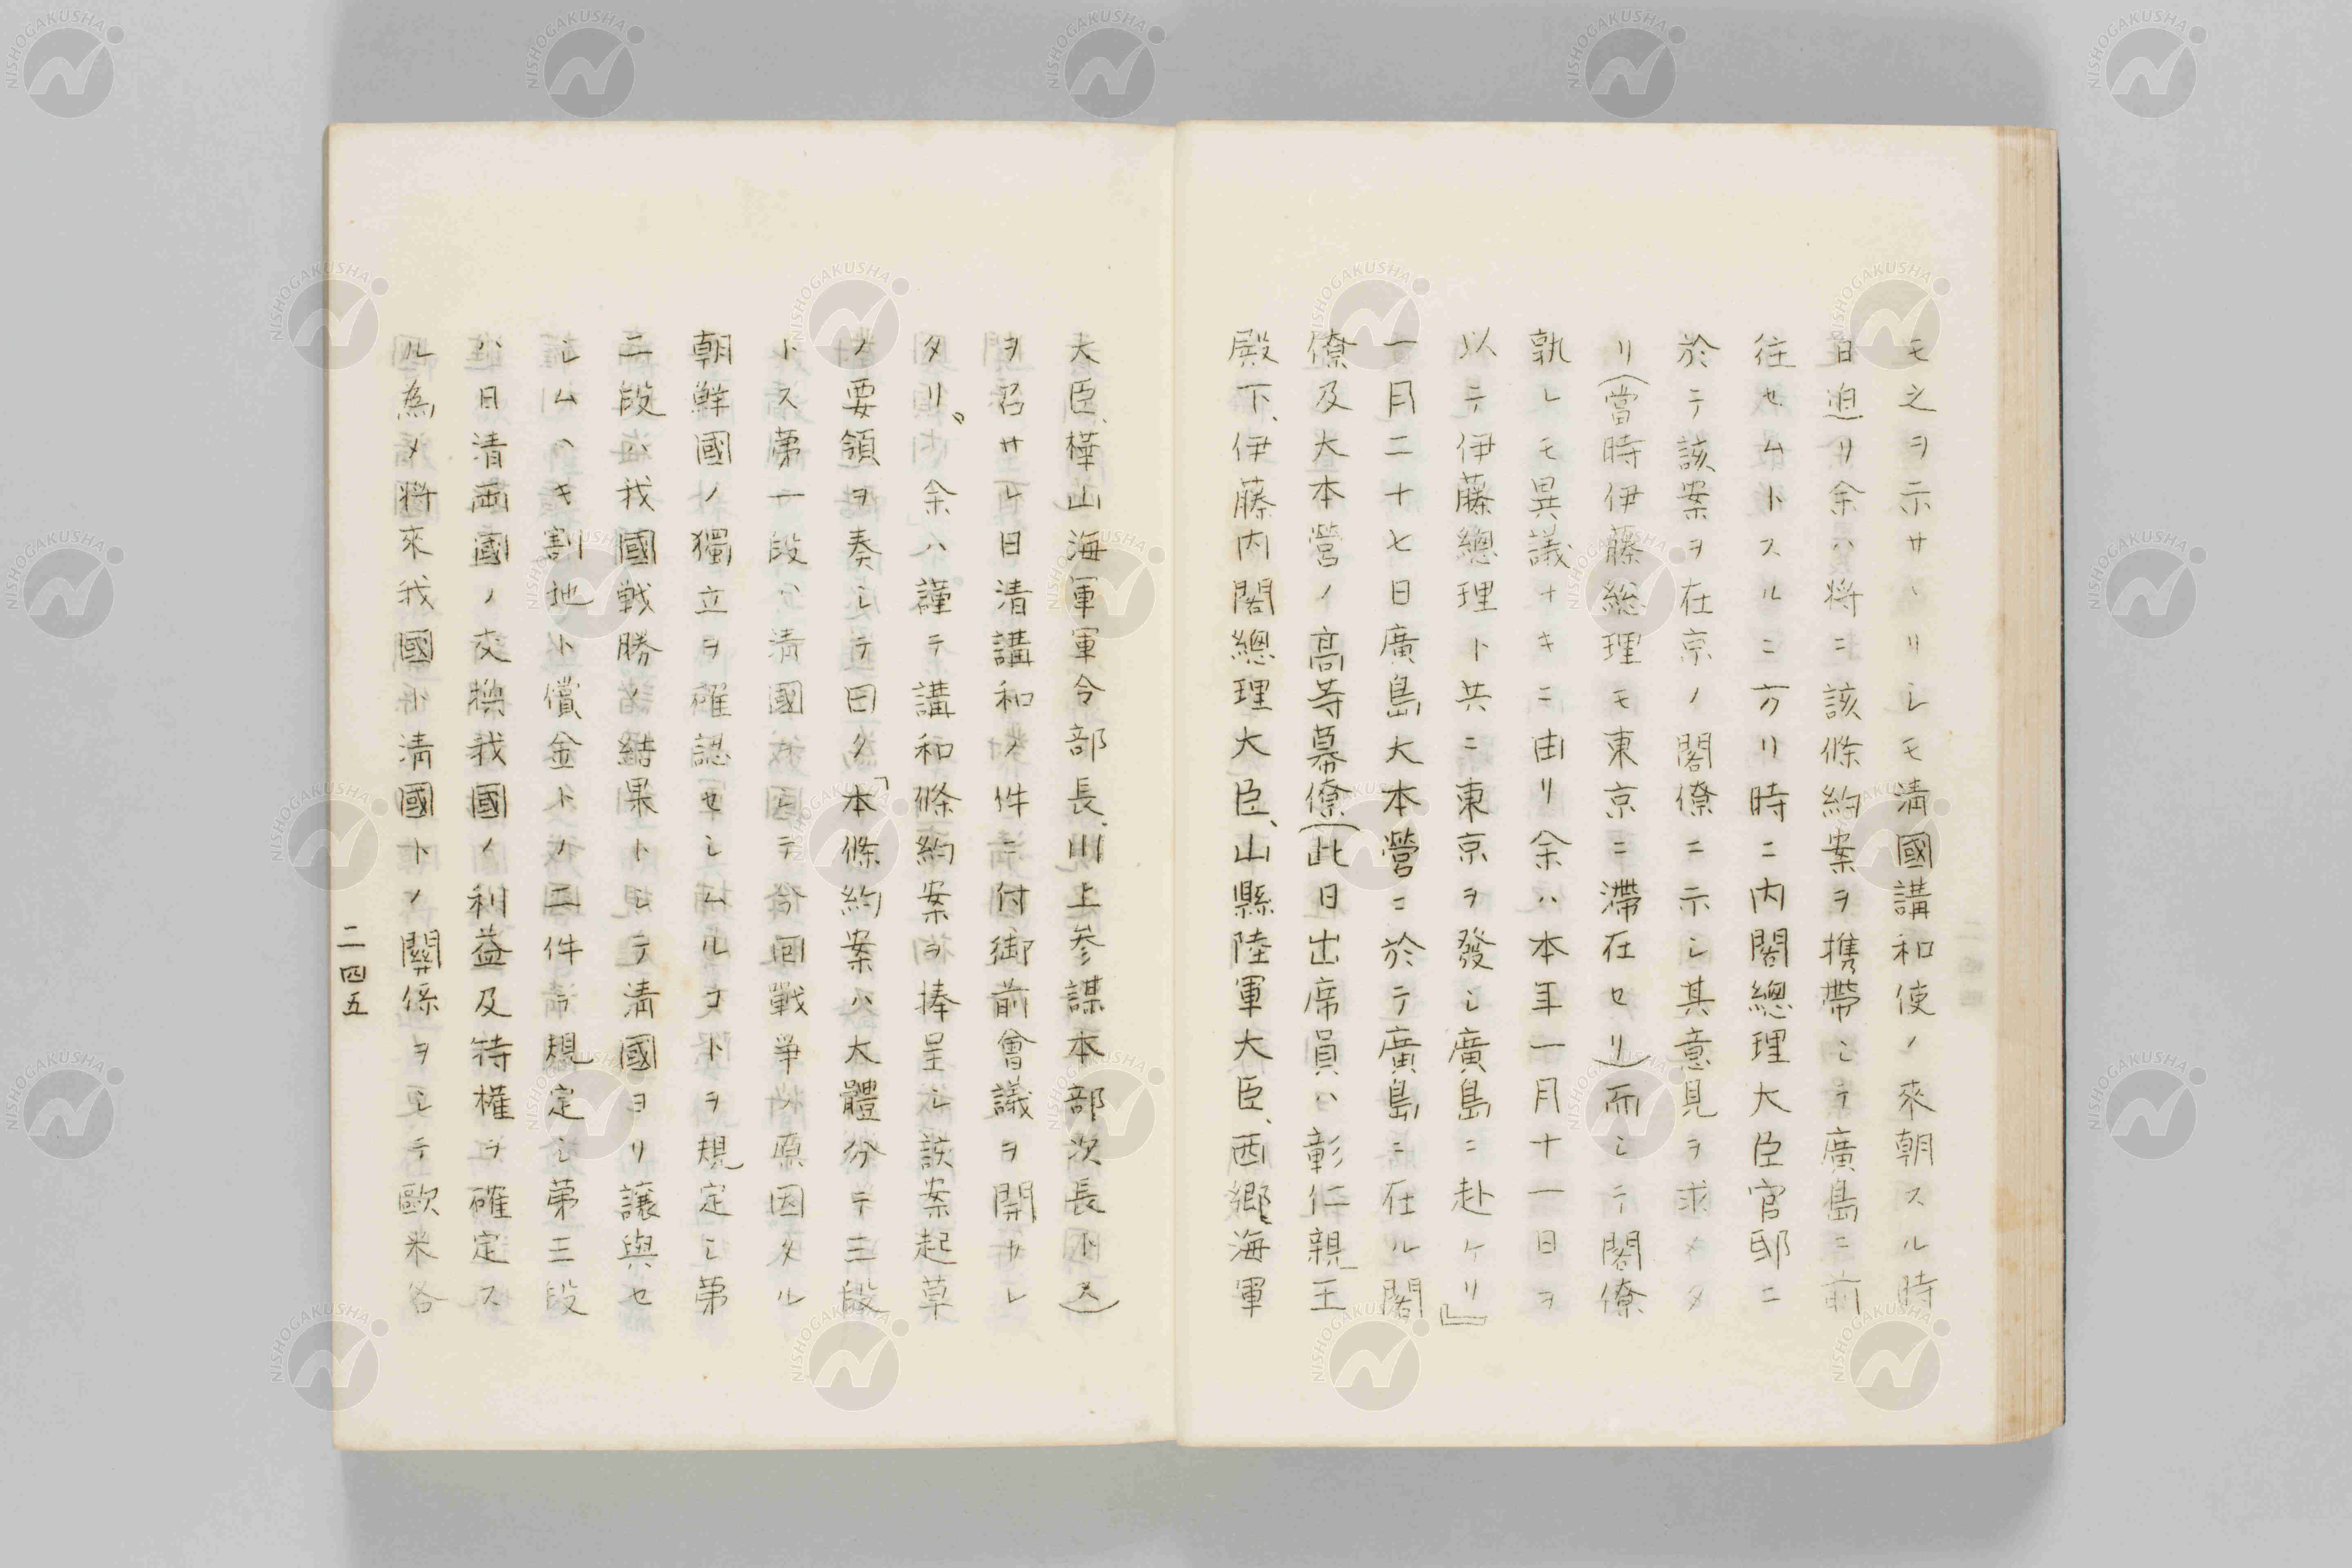 モ之ヲ示サヽリシモ清國講和使ノ來朝スル時
日迫リ余ハ将ニ該條約案ヲ携帶シテ廣島ニ前
往セムトスルニ方リ時ニ内閣總理大臣官邸ニ
於テ該案ヲ在京ノ閣僚ニ示シ其意見ヲ求メタ
リ(當時伊藤総理モ東京ニ滯在セリ)而シテ閣僚
孰レモ異議ナキニ由リ余ハ本年一月十一日ヲ
以テ伊藤總理ト共ニ東京ヲ發シ廣島ニ赴ケリ』
一月二十七日廣島大本營ニ於テ廣島ニ在ル閣
僚及大本營ノ高等幕僚(此日出席員ハ彰仁親王
殿下、伊藤内閣總理大臣、山縣陸軍大臣、西郷海軍
大臣、樺山海軍軍令部長、川上参謀本部次長トス)
ヲ召サレ日清講和ノ件ニ付御前會議ヲ開カレ
タリ、余ハ謹テ講和條約案ヲ捧呈シ該案起草
ノ要領ヲ奏シテ曰ク「本條約案ハ大體分テ三段
トス第一段ハ清國ヲシテ今回戰爭ノ原因タル
朝鮮國ノ獨立ヲ確認セシムルコトヲ規定シ第
二段ハ我國戦勝ノ結果トシテ清國ヨリ譲與セ
シムヘキ割地ト償金トノ二件ヲ規定シ第三段
ハ日清両國ノ交換我國ノ利益及特權ヲ確定ス
ル為メ將來我國ト清國トノ關係ヲシテ歐米各
二四五
NISHOGAKUSHA